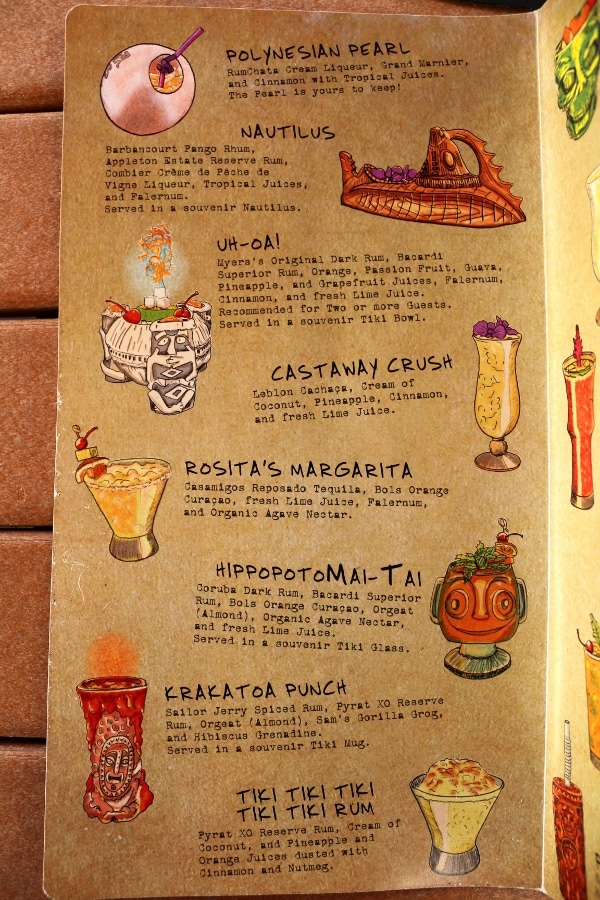 POLYNESIAN PEARL
RumChata Cream Liqueur, Grand Marnier,
and Cinnamon with Tropical Juices.
The Pearl is yours to keep!
NAUTILUS
Barbancourt Pango Rhum,
Appleton Estate Reserve Rum,
Combier Crème de Pêche de
Vigne Liqueur, Tropical Juices,
and Falernum.
Served in a souvenir Nautilus.
UH-OA!
Myers's Original Dark Rum, Bacardi
Superior Rum, Orange, Passion Fruit, Guava,
Pineapple, and Grapefruit Juices, Falernum,
Cinnamon, and fresh Lime Juice.
Recommended for Two or more Guests.
Served in a souvenir Tiki Bowl.
CASTAWAY CRUSH
Leblon Cachaça, Cream of
Coconut, Pineapple, Cinnamon,
and fresh Lime Juice.
ROSITA'S MARGARITA
Casamigos Reposado Tequila, Bols Orange
Curaçao, fresh Lime Juice, Falernum,
and Organic Agave Nectar.
HIPPOPOTOMAI-TAI
Coruba Dark Rum, Bacardi Superior
Rum, Bols Orange Curaçao, Orgeat
(Almond), Organic Agave Nectar,
and fresh Lime Juice.
Served in a souvenir Tiki Glass.
KRAKATOA PUNCH
Sailor Jerry Spiced Rum, Pyrat XO Reserve
Rum, Orgeat (Almond), Sam's Gorilla Grog,
and Hibiscus Grenadine.
Served in a souvenir Tiki Mug.
TIKI TIKI TIKI
TIKI TIKI RUM
Pyrat XO Reserve Rum, Cream of
Coconut, and Pineapple and
Orange Juices dusted with
Cinnamon and Nutmeg.